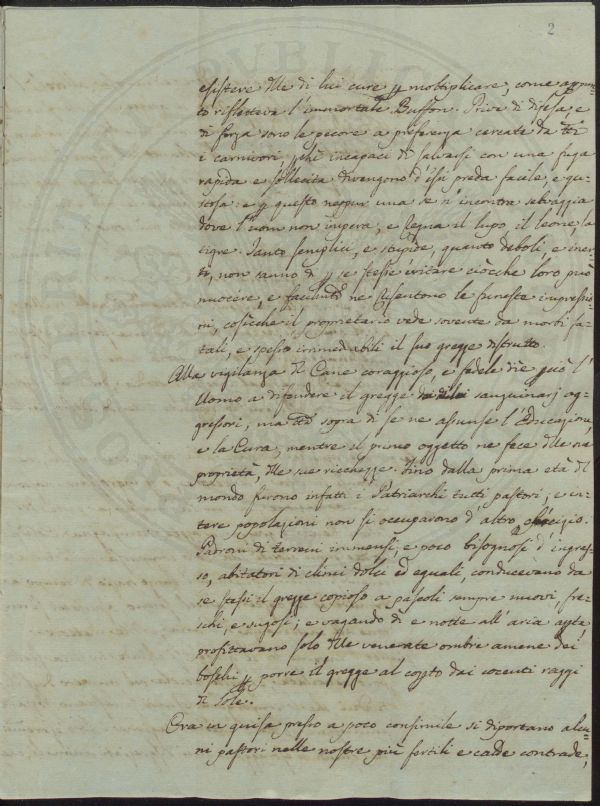 2
esistere dlle di lui cure p moltiplicare, come appun-
to rifletteva l'immortale Buffon. Prive di difesa, e
di forza sono le pecore a preferenza cercate da tti
i carnivori, pchè incapaci di salvarsi con una fuga
rapida e sollecita divengono d'essi preda facile, e gu-
stosa: e p questo neppur una se n'incontra selvaggia
dove l'uom non impera, e regna il lupo, il leone la
tigre. Tanto semplici, e stupide, quanto deboli, e iner-
ti, non sanno di p se stesse evitare ciocche loro può
nuocere, e facilmte ne risentono le funeste impressio-
ni, cosicche il proprietario vede sovente da morbi fa-
tali, e spesso immedicabili il suo gregge distrutto.
Alla vigilanza di Cane coraggioso, e fedele die può l'
Uomo a difendere il gregge dai sanguinarj ag-
gressori, ma sopra di se ne assunse l'Educazione,
e la Cura, mentre il primo oggetto ne fece dlle sue
proprietà, dlle sue ricchezze. Fino dalla prima età dl
mondo furono infatti i Patriarchi tutti pastori, e in-
tere popolazioni non si occuparono d'altro esercizio.
Padroni di terreni immensi, e poco bisognosi d'ingres-
so, abitatori di climi dolci ed eguali, conducevano da
se stessi il gregge copioso a pascoli sempre nuovi, fre-
schi, e sugosi; e vagando dì e notte all'aria apta
profittavano solo dlle venerate ombre amene dei
boschi p porre il gregge al copto dai cocenti raggi
di Sole.
Ora in guisa presso a poco consimile si diportano alcu-
ni pastori nelle nostre più fertili e calde contrade,